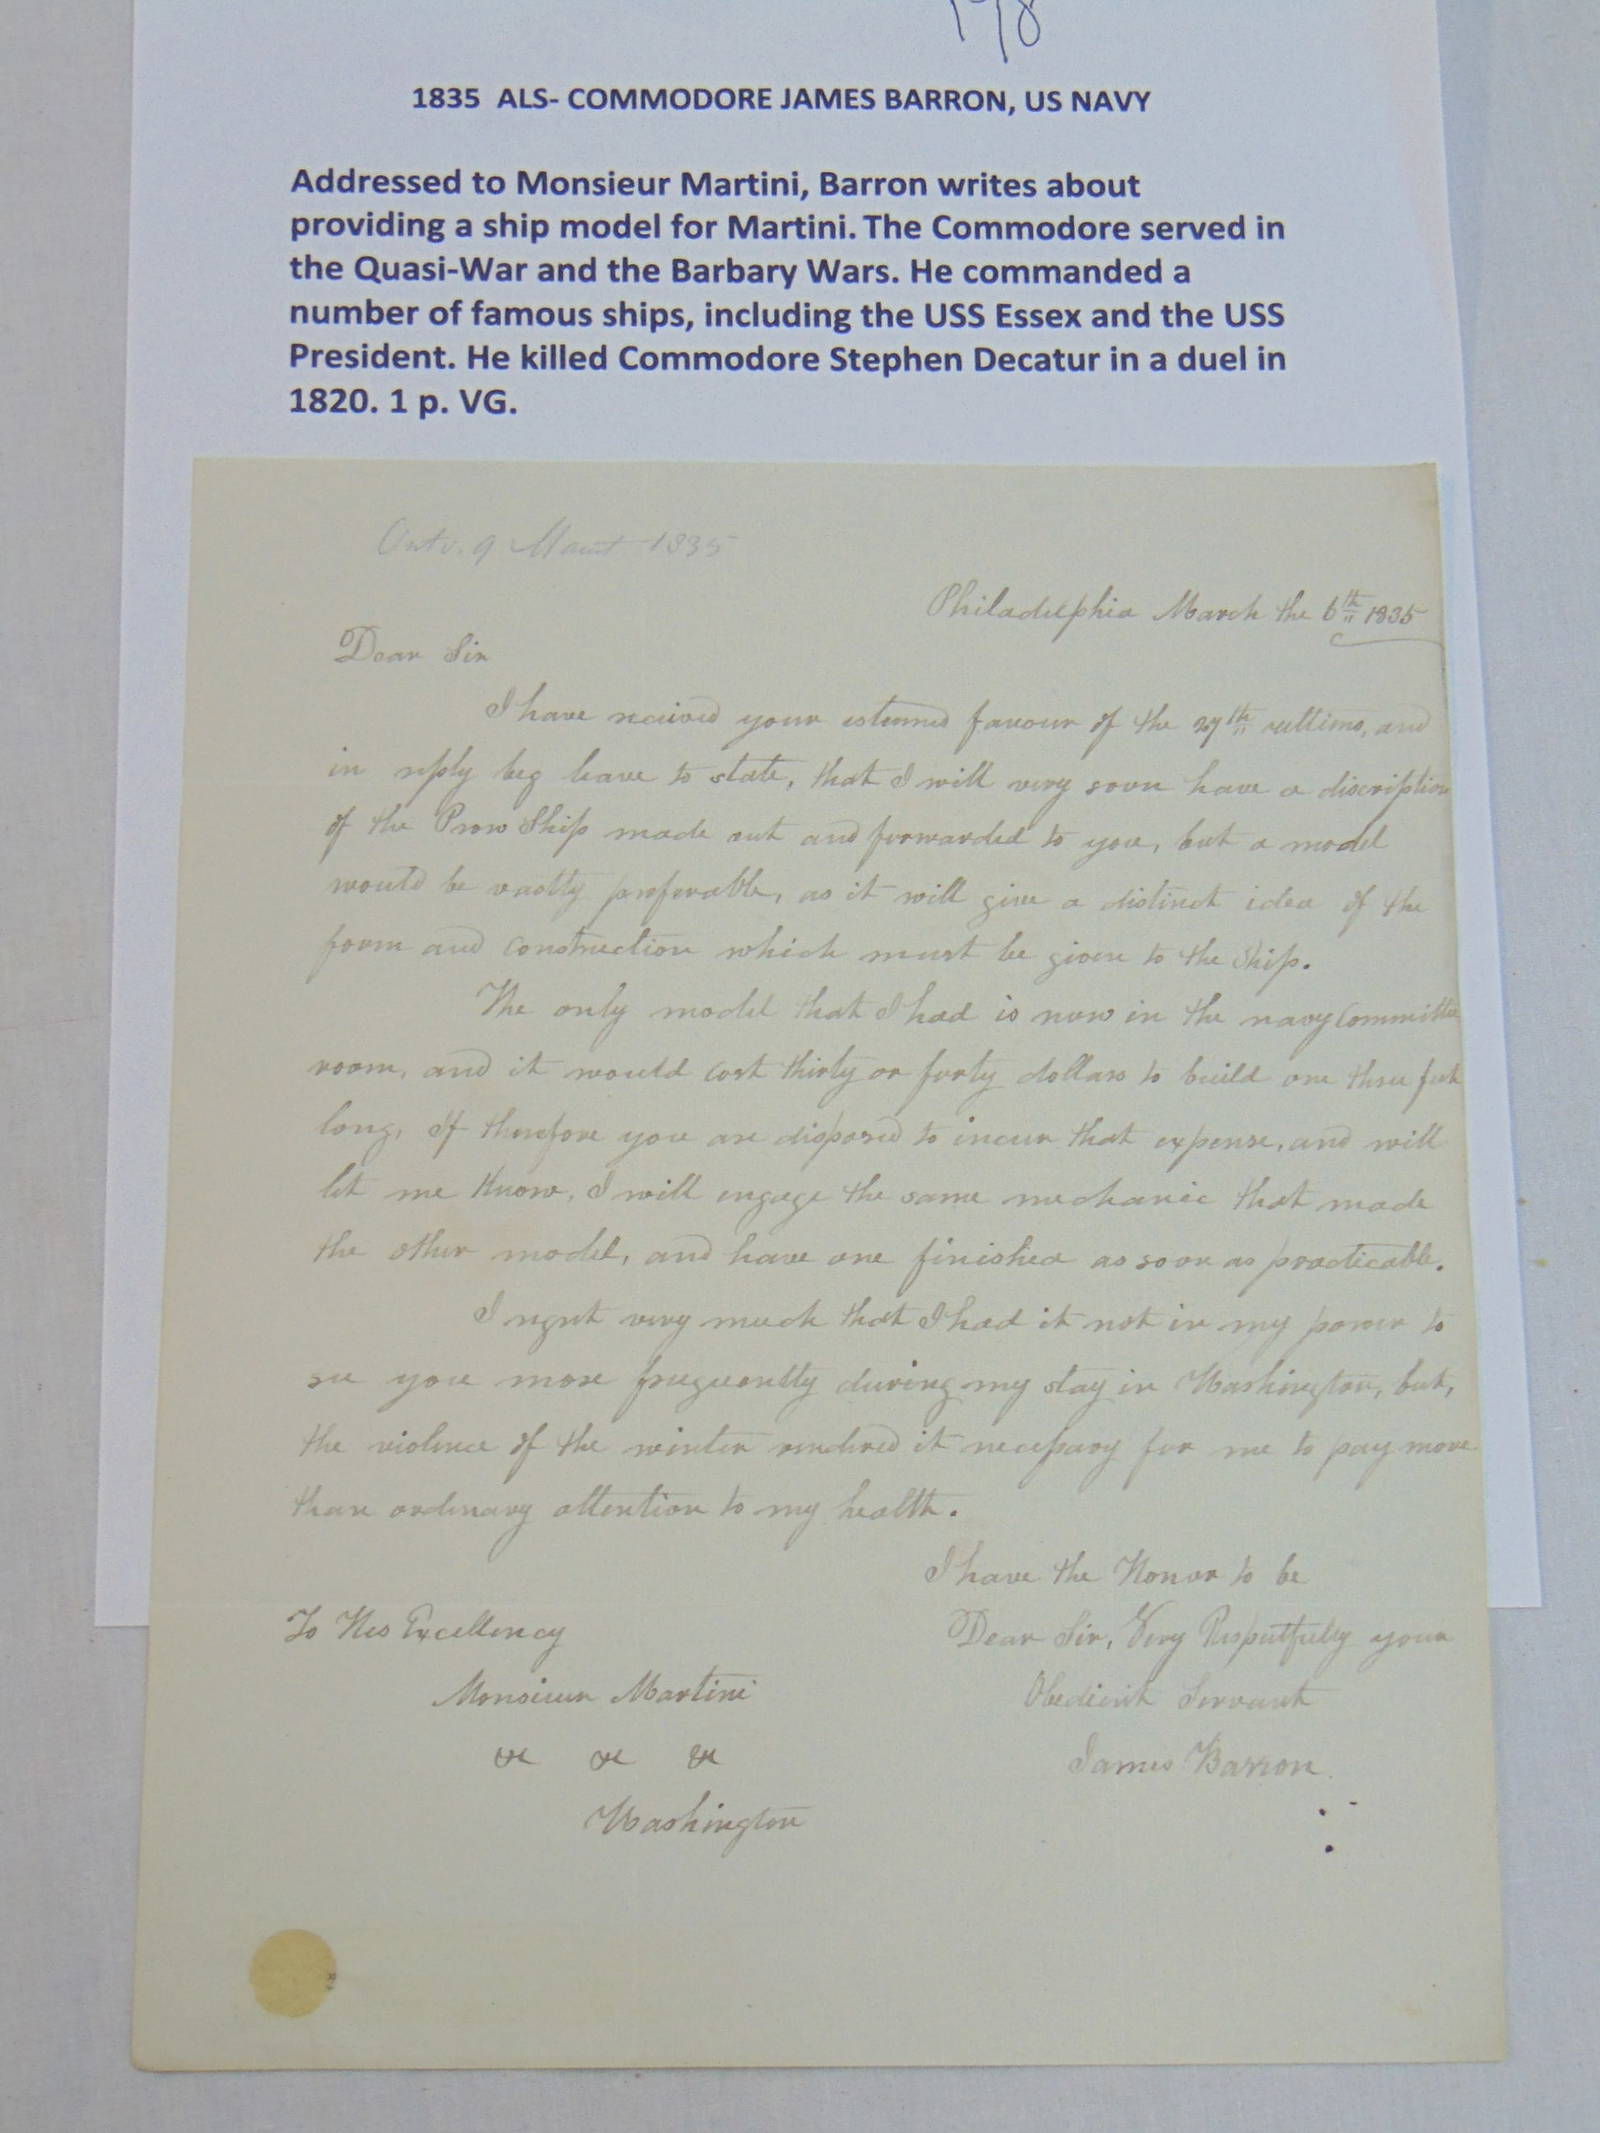 198
1835 ALS- COMMODORE JAMES BARRON, US NAVY
Addressed to Monsieur Martini, Barron writes about
providing a ship model for Martini. The Commodore served in
the Quasi-War and the Barbary Wars. He commanded a
number of famous ships, including the USS Essex and the USS
President. He killed Commodore Stephen Decatur in a duel in
1820. 1 p. VG.
9 1835
Philadelphia March the 6th 1835
Dear Sir
I have received your esteemed favour of the 27th ultimo, and
in reply beg leave to state, that I will very soon have a discription
of the Prow Ship made out and forwarded to you, but a model
would be vastly preferable, as it will give a distinct idea of the
form and construction which must be given to the Ship.
The only model that I had is now in the navy Committee
room, and it would cost thirty or forty dollars to build one three feet
long, If therefore you are disposed to incur that expense, and will
let me Know, I will engage the same mechanic that made
the other model, and have one finished as soon as practicable.
I regret very much that I had it not in my power to
see you more frequently during my stay in Washington, but,
the violence of the winter rendered it necessary for me to pay more
than ordinary attention to my health.
I have the Honor to be
To His Excellency
Dear Sir, Very Respectfully your
Monsieur Martini
Obedient Servant
&c &c &c
James Barron
Washington